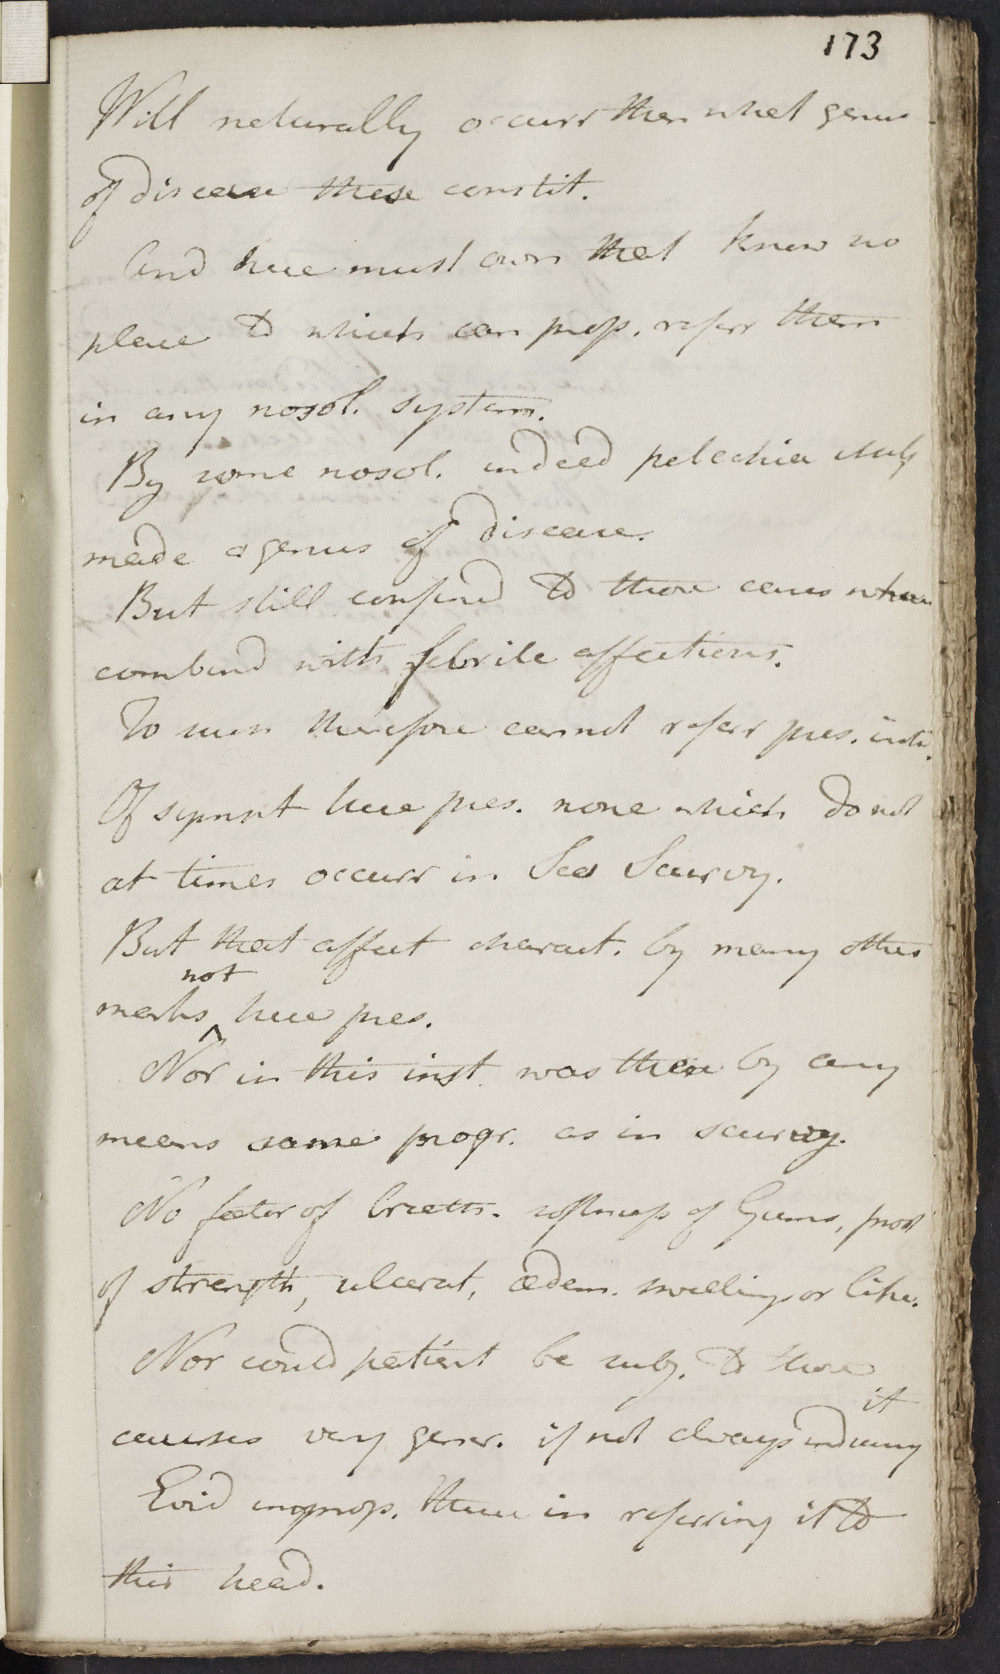 173
Will naturally occurr then what genus
of disease these constit.
And here must own that know no
place to which can prop. referr them
in any nosol. system.
By some nosol. indeed petechiæ
made a genus of disease.
But still confined to those cases where
combind with febrile affections.
To such therefore cannot referr pres. inst.
Of sympt here pres. none which do not
at times occurr in Sea Scurvy.
But that affect charact. by many other
not
marks ^ here pres.
Nor in this inst. was there by any
means same progr. as in scurvy.
No feetor of breath. softness of Gums, prost
of strength, ulcerat, œdem. swellings or like.
Nor could patient be subj. to those
it
causes very gener. if not always inducing
Evid improp. there in referring it to
this head.